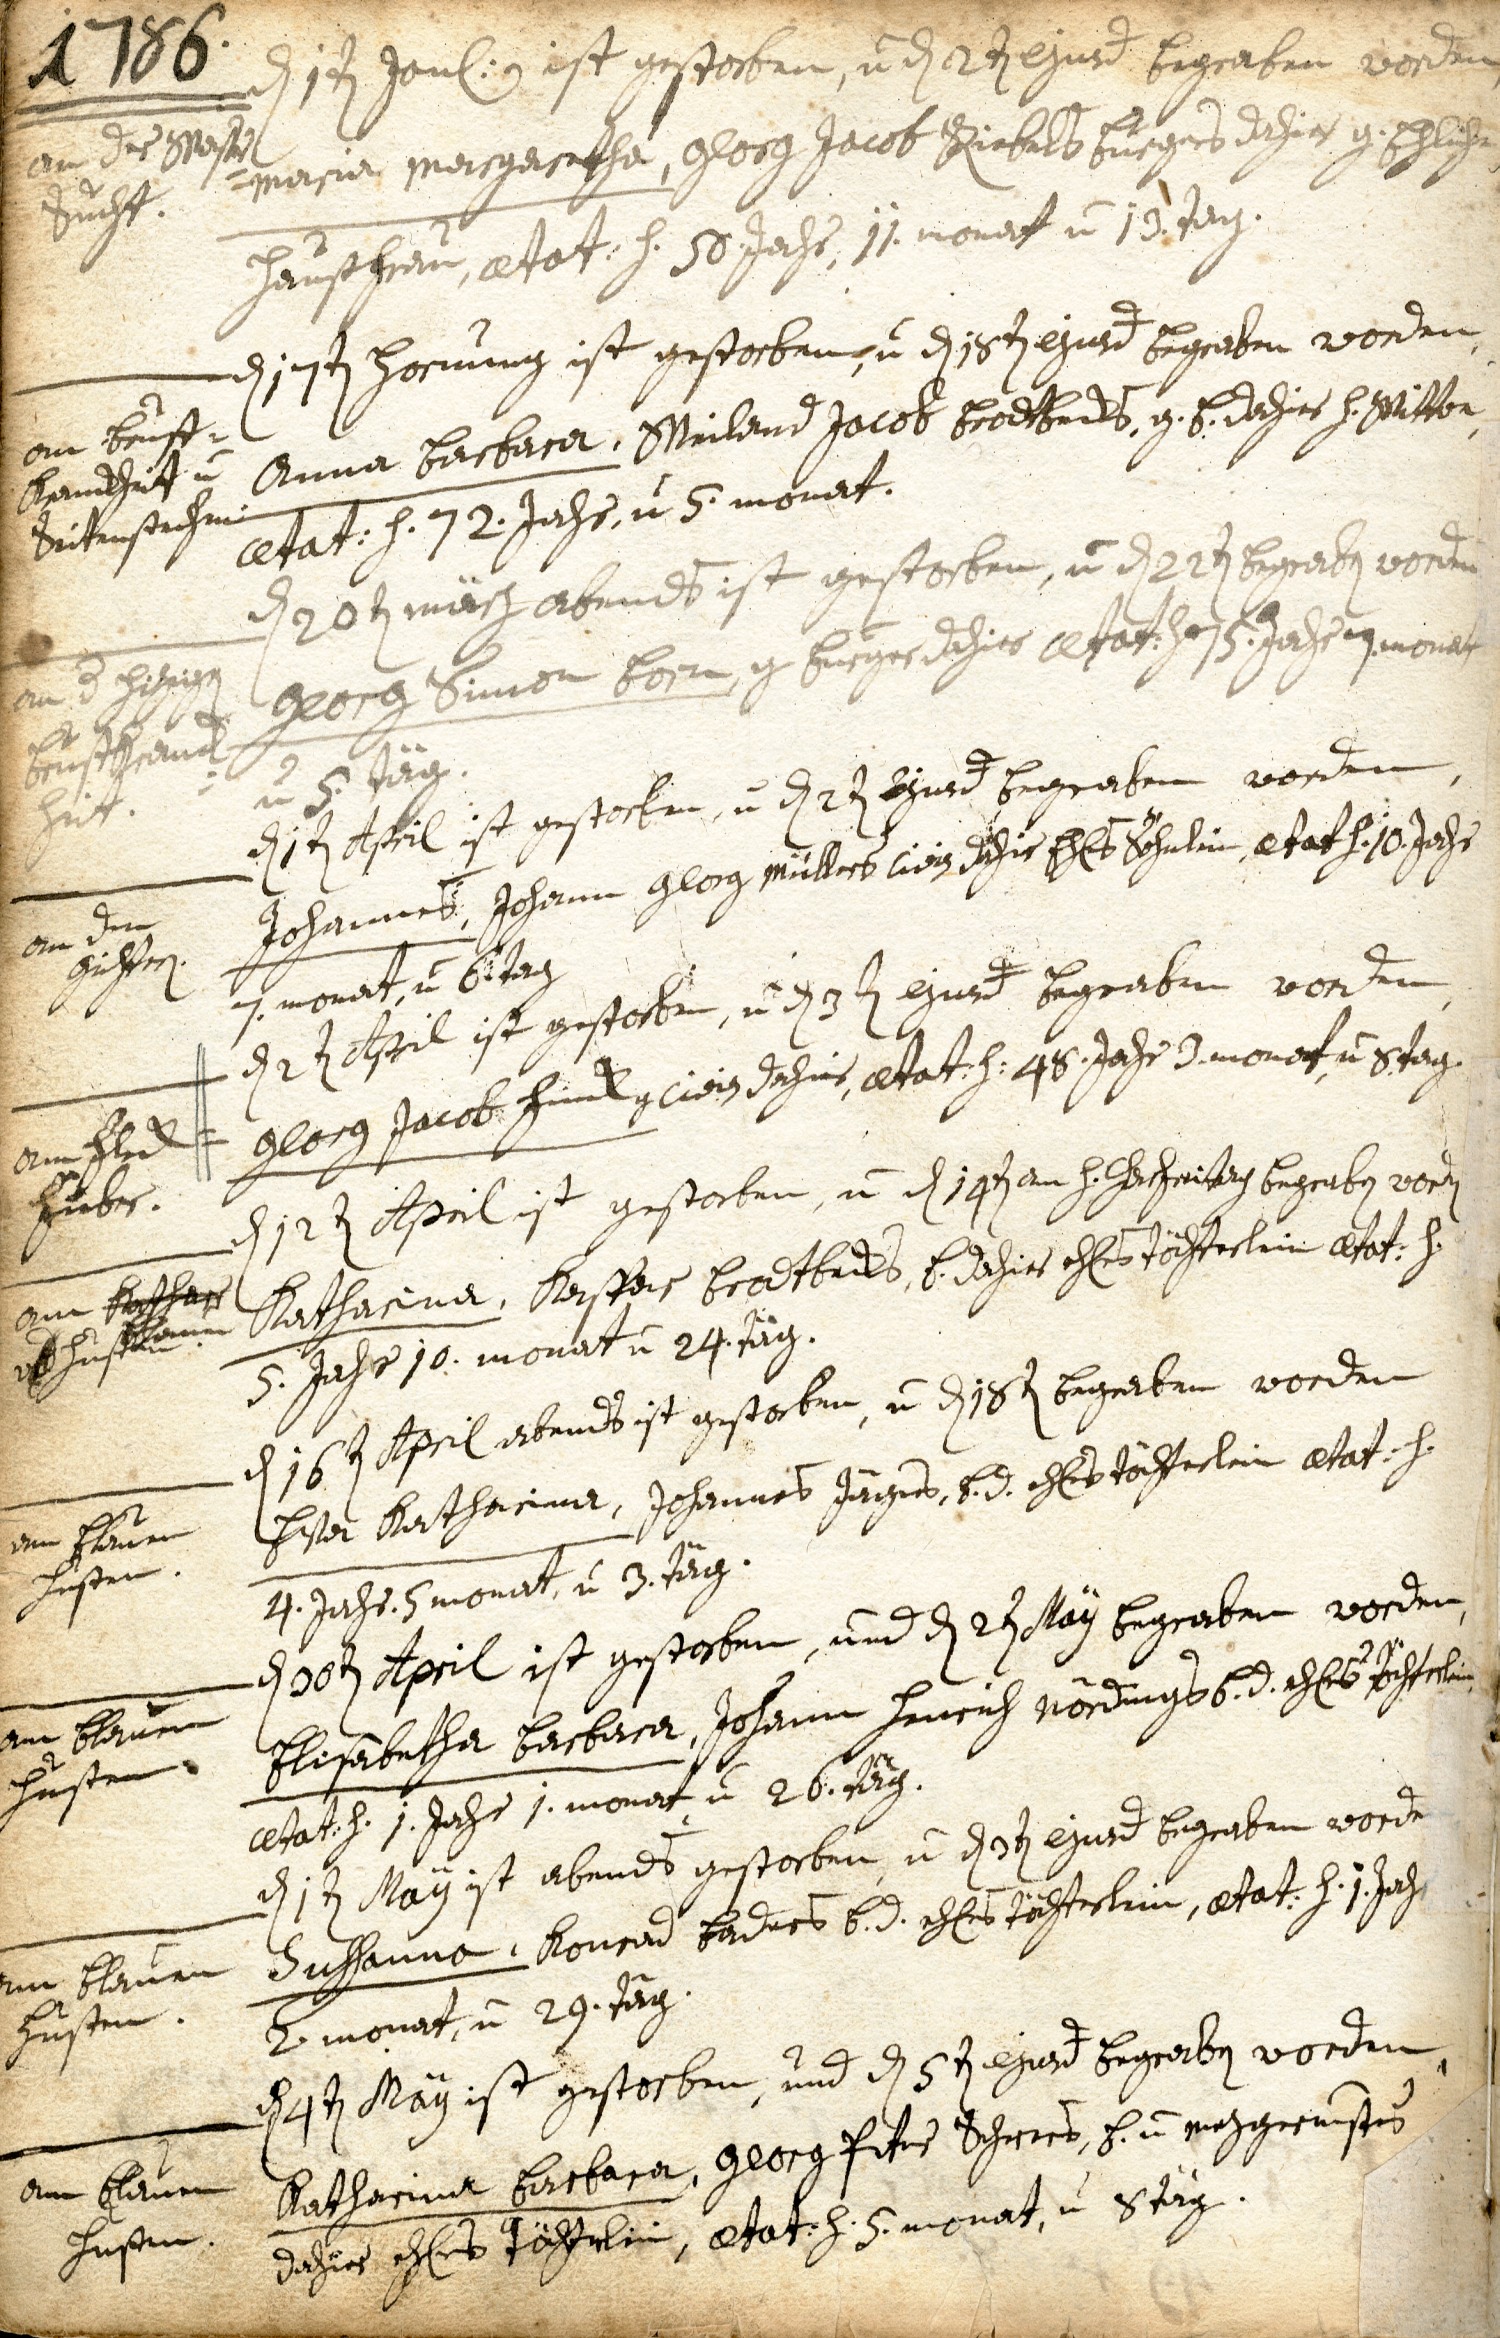 1786.
d 1t Jan: ist gestorben, u d 2t ejusd begraben worden
an der Wasser
sucht.
Maria Margaretha, Georg Jacob Riebels burgers dahier g. Ehliche
Haußfrau, ætat: h. 50 Jahr, 11. monat u 13. tag.
d 17t Hornung ist gestorben, u d 18t ejusd begraben worden,
an brust-
kranckheit u
Seitenstechen
Anna Barbara, Weiland Jacob Brodtbecks, g. b. dahier h. Wittwe,
ætat: h. 72. Jahr, u 5. monat.
d 20t märz abends ist gestorben, u d 22t begraben worden
an d hitzigen
brustkranck
heit.
Georg Simon Born, g burger dahier ætat: h 75. Jahr 7. monat
u 5. täg.
d 1t April ist gestorben, u d 2t Ejusd begraben worden,
an den
gichtern.
Johannes, Johann Georg Müllers civis dahier Ehls Söhnlein, ætat h. 10. Jahr
7. monat, u 6 tag
d 2t April ist gestorben, u d 3t ejusd begraben worden,
am Fleck-
Fieber.
Georg Jacob Finck g civis dahier, ætat: h: 48. Jahr 3. monat, u 8 tag.
d 12t April ist gestorben, u d 14t am h. Charfreitag begraben word
am Kathar
husten.
Katharina, Kaspar Brodtbecks, b. dahier ehls töchterlein ætat: h.
5. Jahr 10. monat u 24. täg.
d 16t April abends ist gestorben, u d 18t begraben worden
am blauen
husten.
Eva Katharina, Johannes Jägers, b. d. ehls töchterlein ætat: h.
4. Jahr. 5 monat, u 3. täg.
d 30t April ist gestorben, und d 2t May begraben worden,
am blauen
husten.
Elisabetha Barbara, Johann Henrich Nördings b. d. ehls töchterlein,
ætat: h. 1. Jahr 1. monat, u 26. täg.
d 1t May ist abends gestorben, u d 3t ejusd begraben worde
am blauen
husten.
Sussanna, Konrad Baders b. d. ehls töchterlein, ætat: h. 1. Jahr
2. monat, u 29. täg.
d 4t May ist gestorben, und d 5t ejusd begraben worden,
am blauen
husten.
Katharina Barbara, Georg Peter Scherers, b. u mezgermsters
dahier ehls töchterlein, ætat: h. 5. monat, u 8 täg.